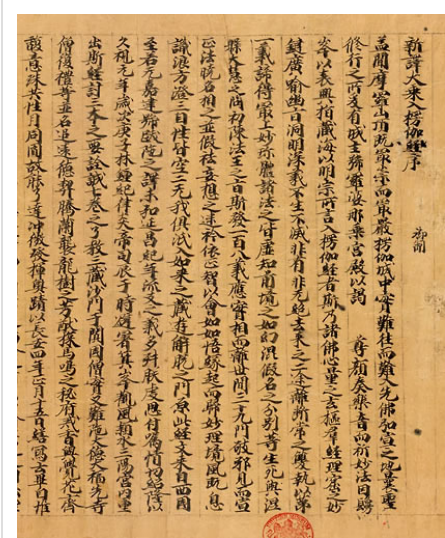 新譯大乘入楞伽經序 御製
蓋聞摩羅山頂既最崇而最嚴楞伽城中實難往而難入先佛弘宣之地曩聖
修行之所爰有城主號羅婆那乘宮殿以謁 尊顏奏樂音而祈妙法因鬘
峯以表興指藏海以明宗所言入楞伽經者斯乃諸佛心量之玄樞群經理窟之妙
鍵廣喻幽旨洞明深義不生不滅非有非無絕去來之二途離斷常之雙執以第
一義諦得最上妙珎體諸法之皆虛知前境之如幻混假名之分別等生死與涅
槃大慧之問初陳法王之旨斯發一百八義應實相而離世間三十九門破邪見而宣
正法曉名相之並假祛妄想之迷衿依正智以會如如悟緣起而歸妙理境風既息
識浪方澄三自性皆空二無我俱泯入如來之藏遊解脫之門原此經文來自西國
至若元嘉建號跋陀之譯未弘延昌紀年流支之義多舛朕虔思付囑情切紹隆以
久視元年歲次庚子林鍾紀律炎帝司辰于時避暑箕峯觀風潁水三陽宮內重
出斯經討三本之要詮成七卷之了教三藏沙門于闐國僧實叉難陀大德大福先寺
僧復禮等並名追安遠德契騰蘭襲龍樹之芳猷探馬鳴之秘府戒香與覺花齊
馥意珠共性月同圓故能了達沖微發揮奧賾以長安四年正月十五日繕寫云畢自惟